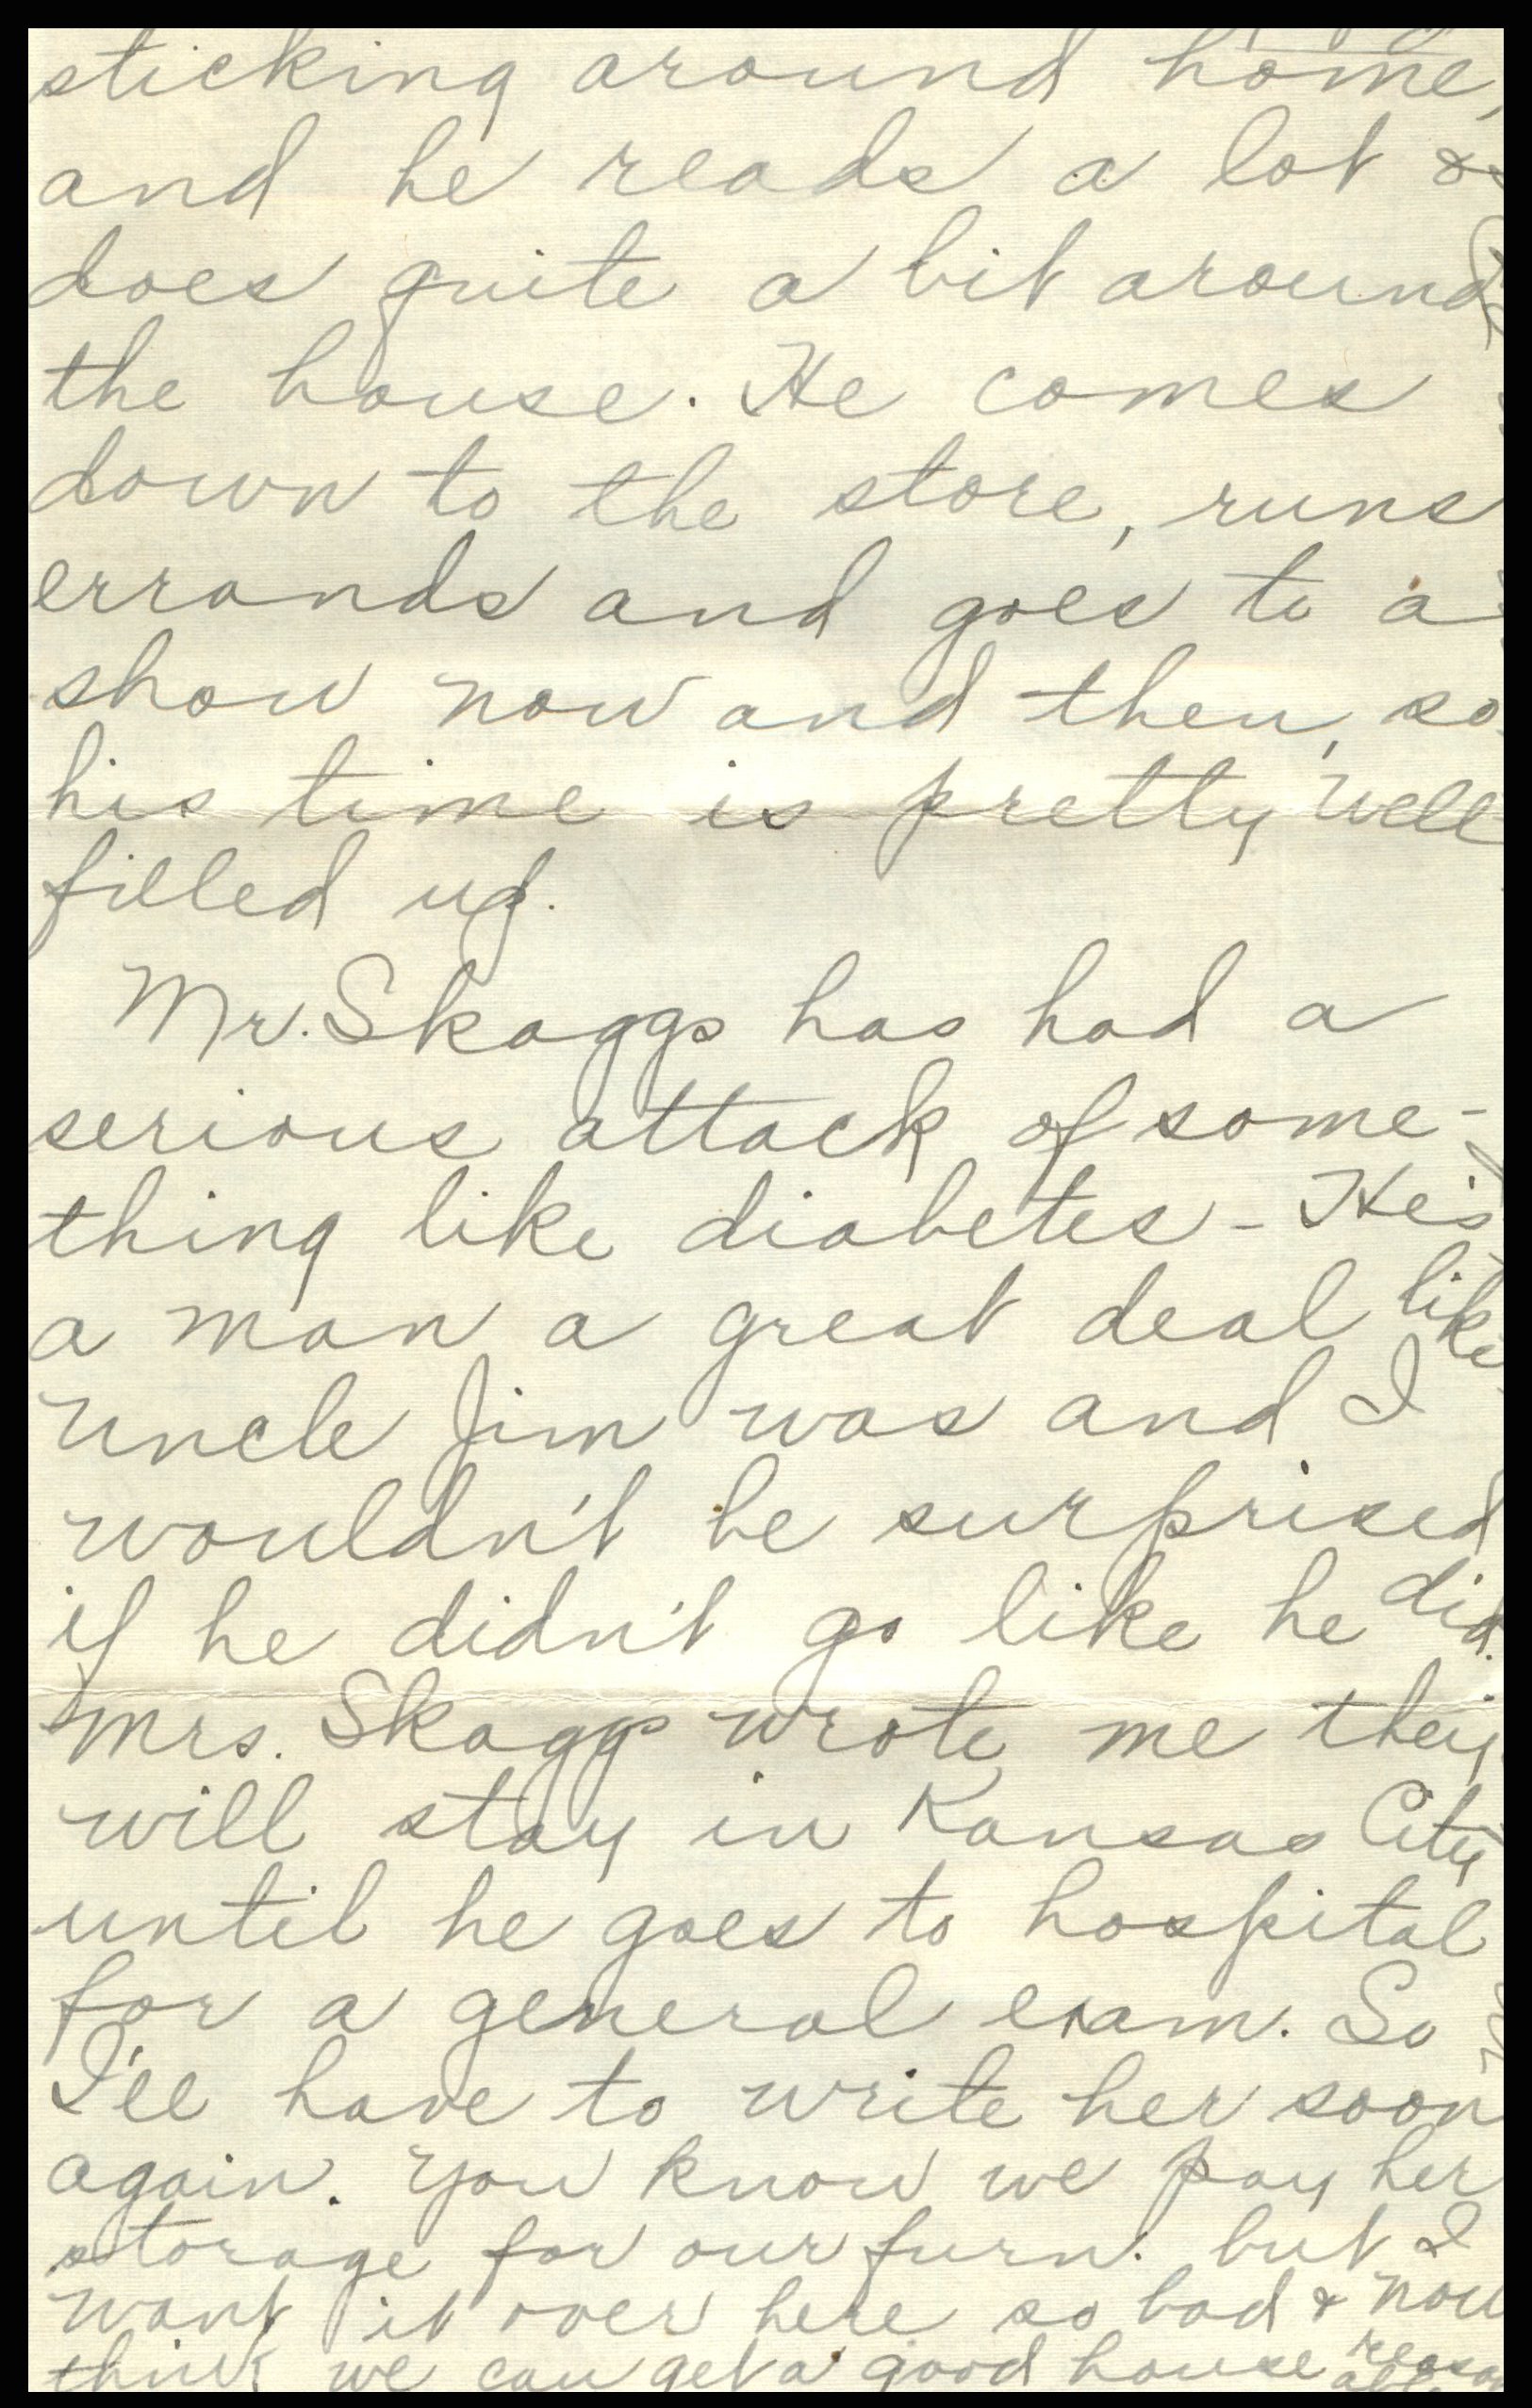 sticking around home,
and he reads a lot &
does quite a bit around
the house. He comes
down to the store, runs
errands and goes to a
show now and then, so
his time is pretty well
filled up.
Mr. Skaggs has had a
serious attack of some-
thing like diabetes - He's
a man a great deal like
Uncle Jim was and I
wouldn't be surprised
if he didn't go like he did.
Mrs. Skaggs wrote me they
will stay in Kansas City
until he goes to hospital
for a general exam. So
I'll have to write her soon
again. You know we pay her
storage for our furn. but I
want it over here so bad & now
think we can get a good house reason